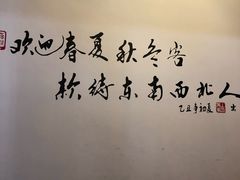 欢迎春夏秋冬客
款待东南西北人
乙丑年初夏